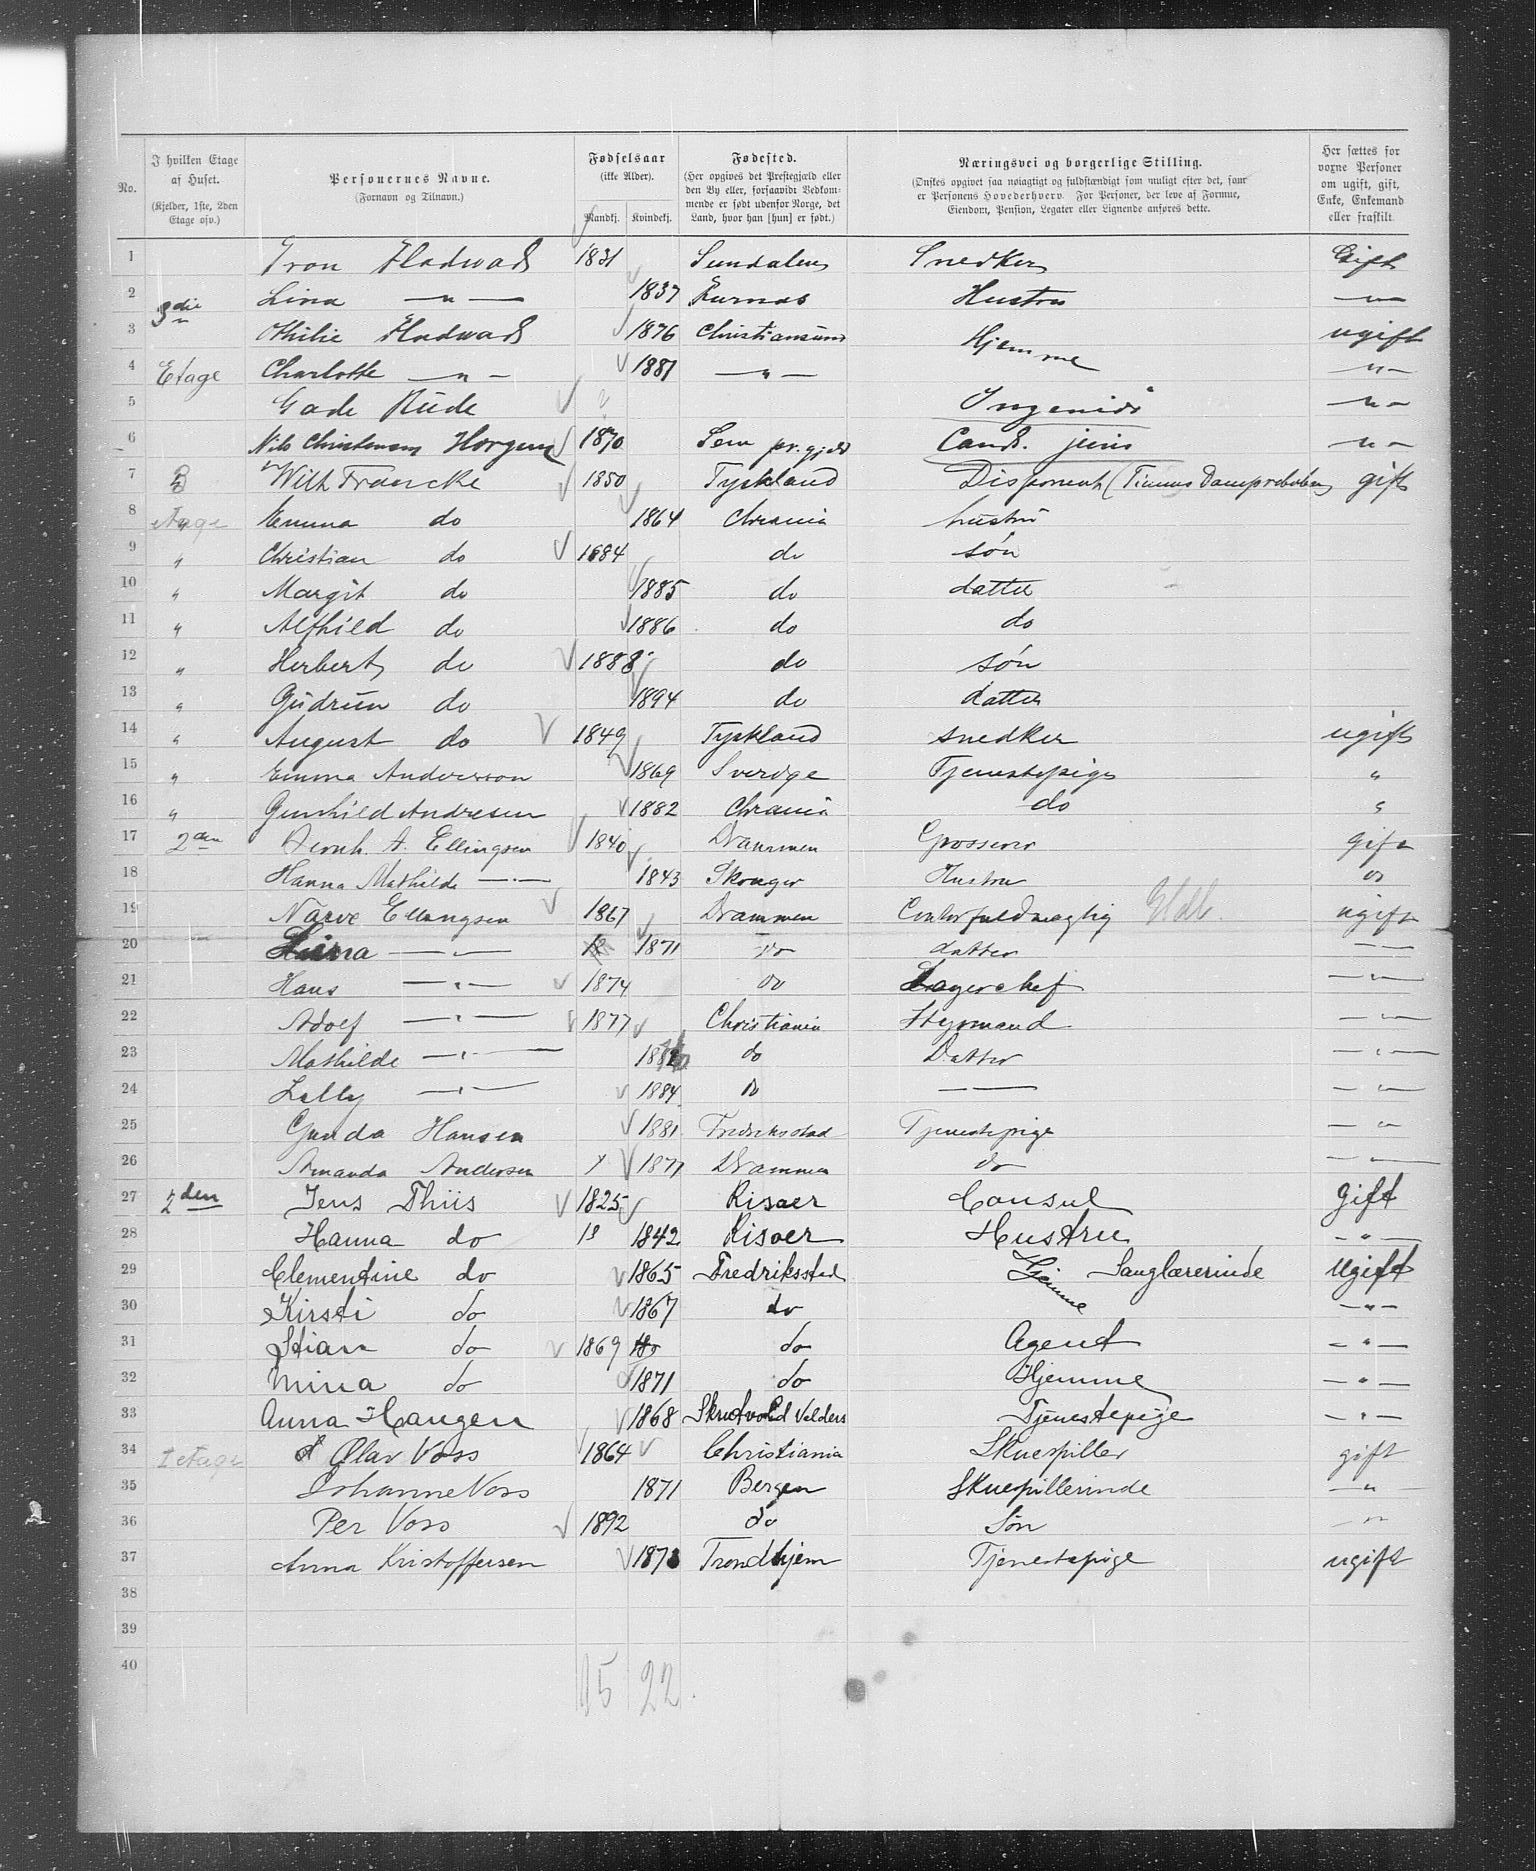 No.
I hvilken Etage af Huset.
(Kjelder, 1ste, 2den Etage osv.)
Personernes Navne.
(Fornavn og Tilnavn.)
Fødselsaar
(ikke Alder).
Mandkj. Kvindekj.
Fødested.
(Her opgives det Prestegjæld eller den By eller, forsaavidt Vedkommende er født udenfor Norge, det Land, hvor han [hun] er født.)
Næringsvei og borgerlige Stilling.
(Ønskes opgivet saa nøiagtigt og fuldstændigt som muligt efter det, som er Personens Hovederhverv. For Personer, der leve af Formue, Eiendom, Pension, Legater eller Lignende anføres dette.
Her sættes for voxne Personer om ugift, gift, Enke, Enkemand eller fraskilt.
1 Iron Hadwad 1831 Sundalen Snedker Gift
2 Lina —"— 1837 Hustru —"—
3 3die Othilie Hadwad 1876 Christiansund Hjemme ugift
4 Etage Charlotte —"— 1881 —"— —"—
5 Gade Rude Ingeniør —"—
6 Nils Christensen Horgen 1870 Sem pr.gjeld Cand. juris —"—
7 Wilh Francke 1850 Tyskland Disponent gift
8 Etage Emma do 1864 Chrania hustru
9 " Christian do 1884 do søn
10 " Margit do 1885 do datter
11 " Alfhild do 1886 do do
12 " Herbert do 1888 do søn
13 " Gudrun do 1894 do datter
14 " August do 1849 Tyskland snedker ugift
15 " Emma Andersson 1869 Sverige Tjenestepige "
16 " Gunhild Andresen 1882 Chrania do "
17 2den Bernh. A. Ellingsen 1840 Drammen Grosserer gift
18 Hanna Mathilde —"— 1843 Skouger Hustru do
19 Narve Ellingsen 1867 Drammen Contorfuldmægtig ugift
20 —"— 18 1871 do datter —"—
21 Hans —"— 1874 do Lagerchef —"—
22 Adolf —"— 1877 Christiania Styrmand —"—
23 Mathilde —"— 1882 do Datter —"—
24 Lally —"— 1884 do —"— —"—
25 Gunda Hansen 1881 Fredriksstad Tjenestepige —"—
26 Amanda Andersen 1877 Drammen do —"—
27 2den Jens Thiis 1825 Risøer Consul Gift
28 Hanna do 18 1842 Risøer Hustru —"—
29 Clementine do 1865 Fredriksstad Hjemme Sanglærerinde Ugift
30 Kirsti do 1867 do —"—
31 Stian do 1869 do Agent —"—
32 Mina do 1871 do Hjemme —"—
33 Anna Haugen 1868 Skrutvold Valders Tjenestepige —"—
34 1 etage Olav Voss 1864 Christiania Skuespiller gift
35 Johanne Voss 1871 Bergen Skuespillerinde —"—
36 Per Voss 1892 do Søn —"—
37 Anna Kristoffersen 1873 Trondhjem Tjenestepige ugift
38
39
40
15 22